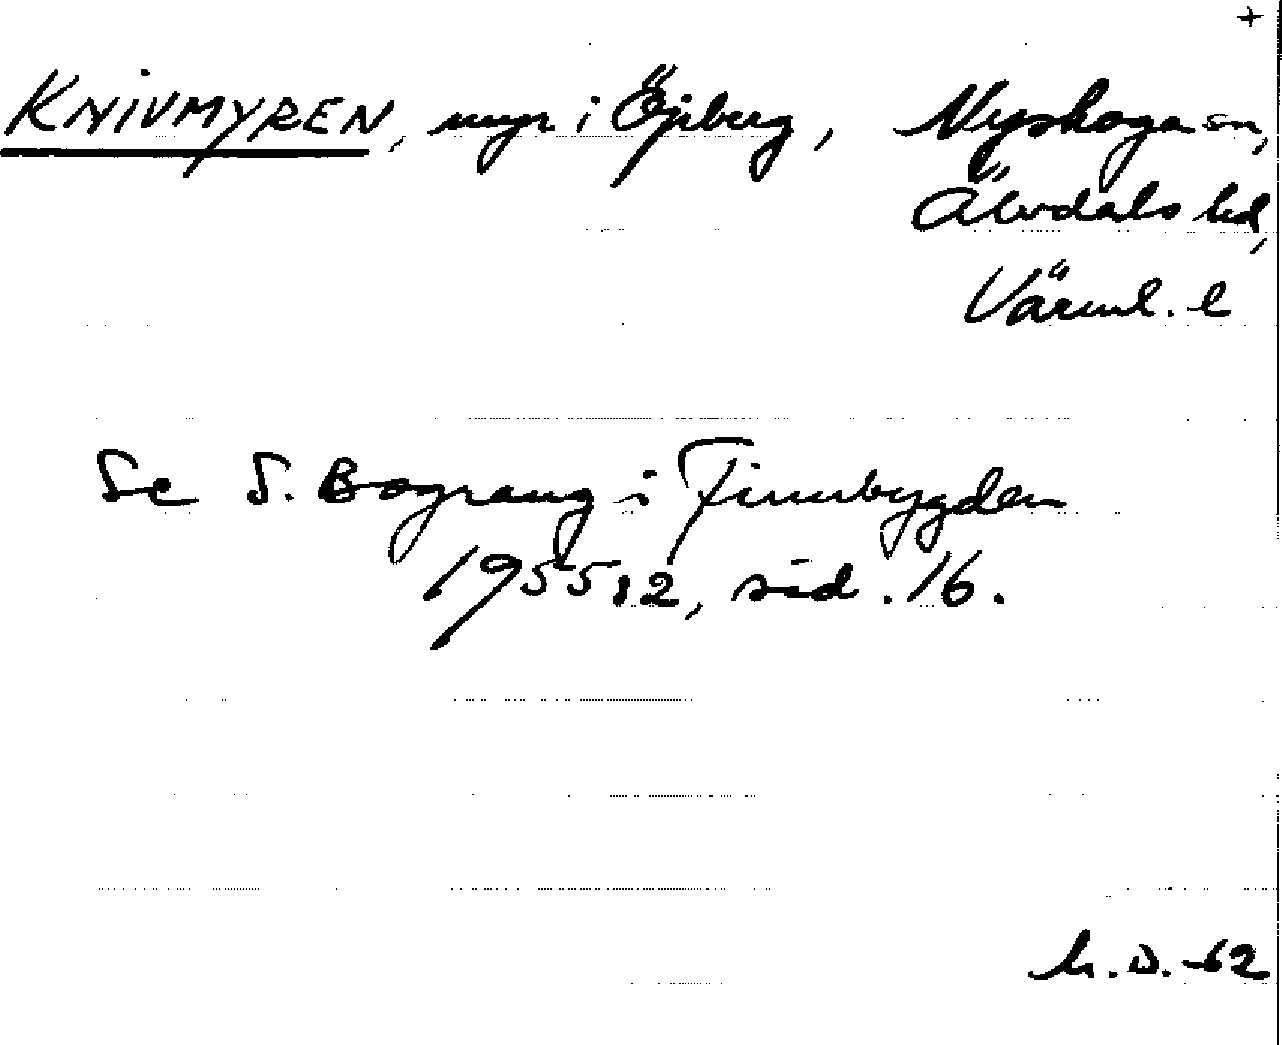 +
KNIVMYREN, myr i Öjeberg, Nyskoga sn,
Älvdals hd,
Värml. l
Se S. Bograng i Finnbygden
1955:2, sid. 16.
h.D. -62